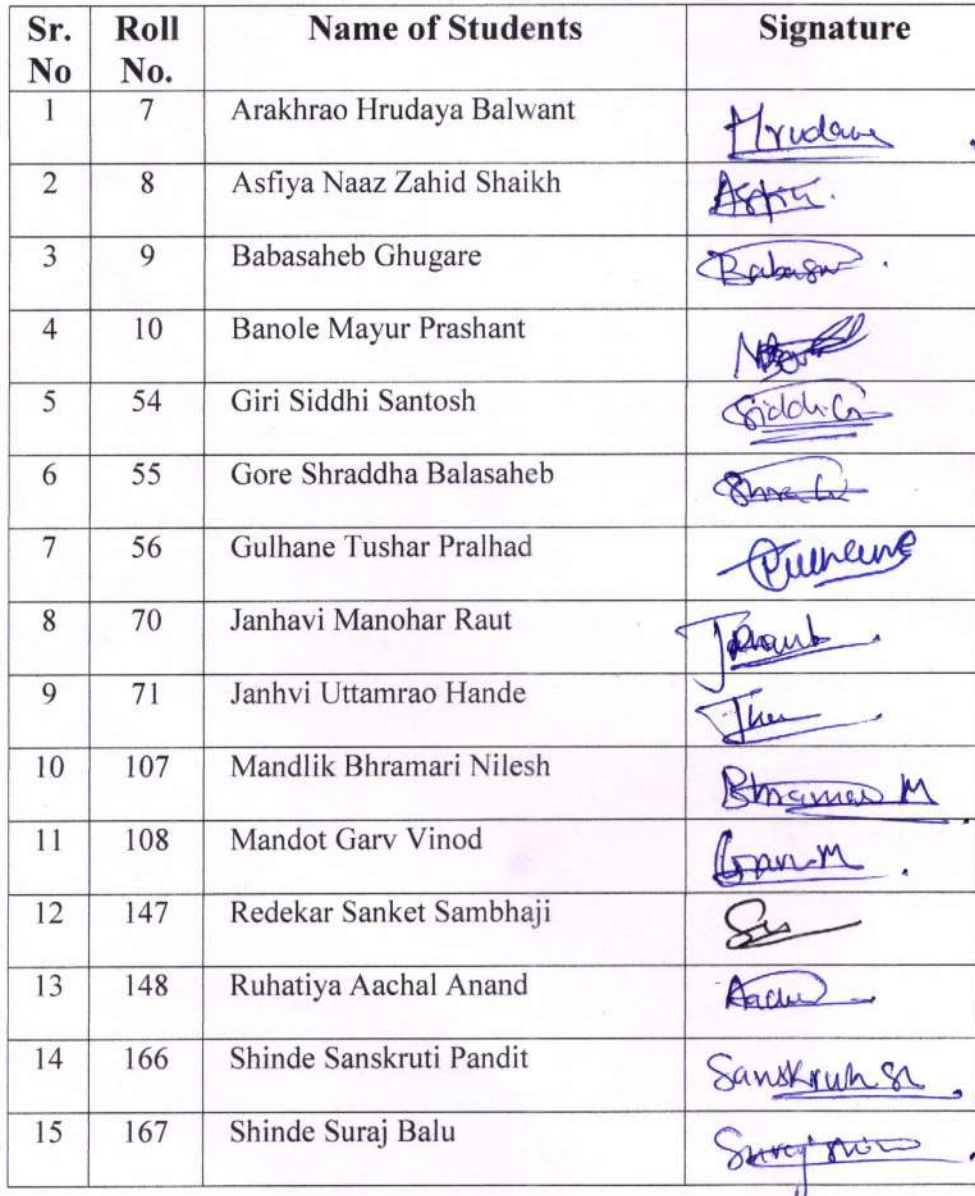 Sr. No Roll No. Name of Students Signature
1 7 Arakhrao Hrudaya Balwant
2 8 Asfiya Naaz Zahid Shaikh
3 9 Babasaheb Ghugare
4 10 Banole Mayur Prashant
5 54 Giri Siddhi Santosh Siddhi.G
6 55 Gore Shraddha Balasaheb
7 56 Gulhane Tushar Pralhad
8 70 Janhavi Manohar Raut
9 71 Janhvi Uttamrao Hande
10 107 Mandlik Bhramari Nilesh
11 108 Mandot Garv Vinod
12 147 Redekar Sanket Sambhaji
13 148 Ruhatiya Aachal Anand
14 166 Shinde Sanskruti Pandit
15 167 Shinde Suraj Balu